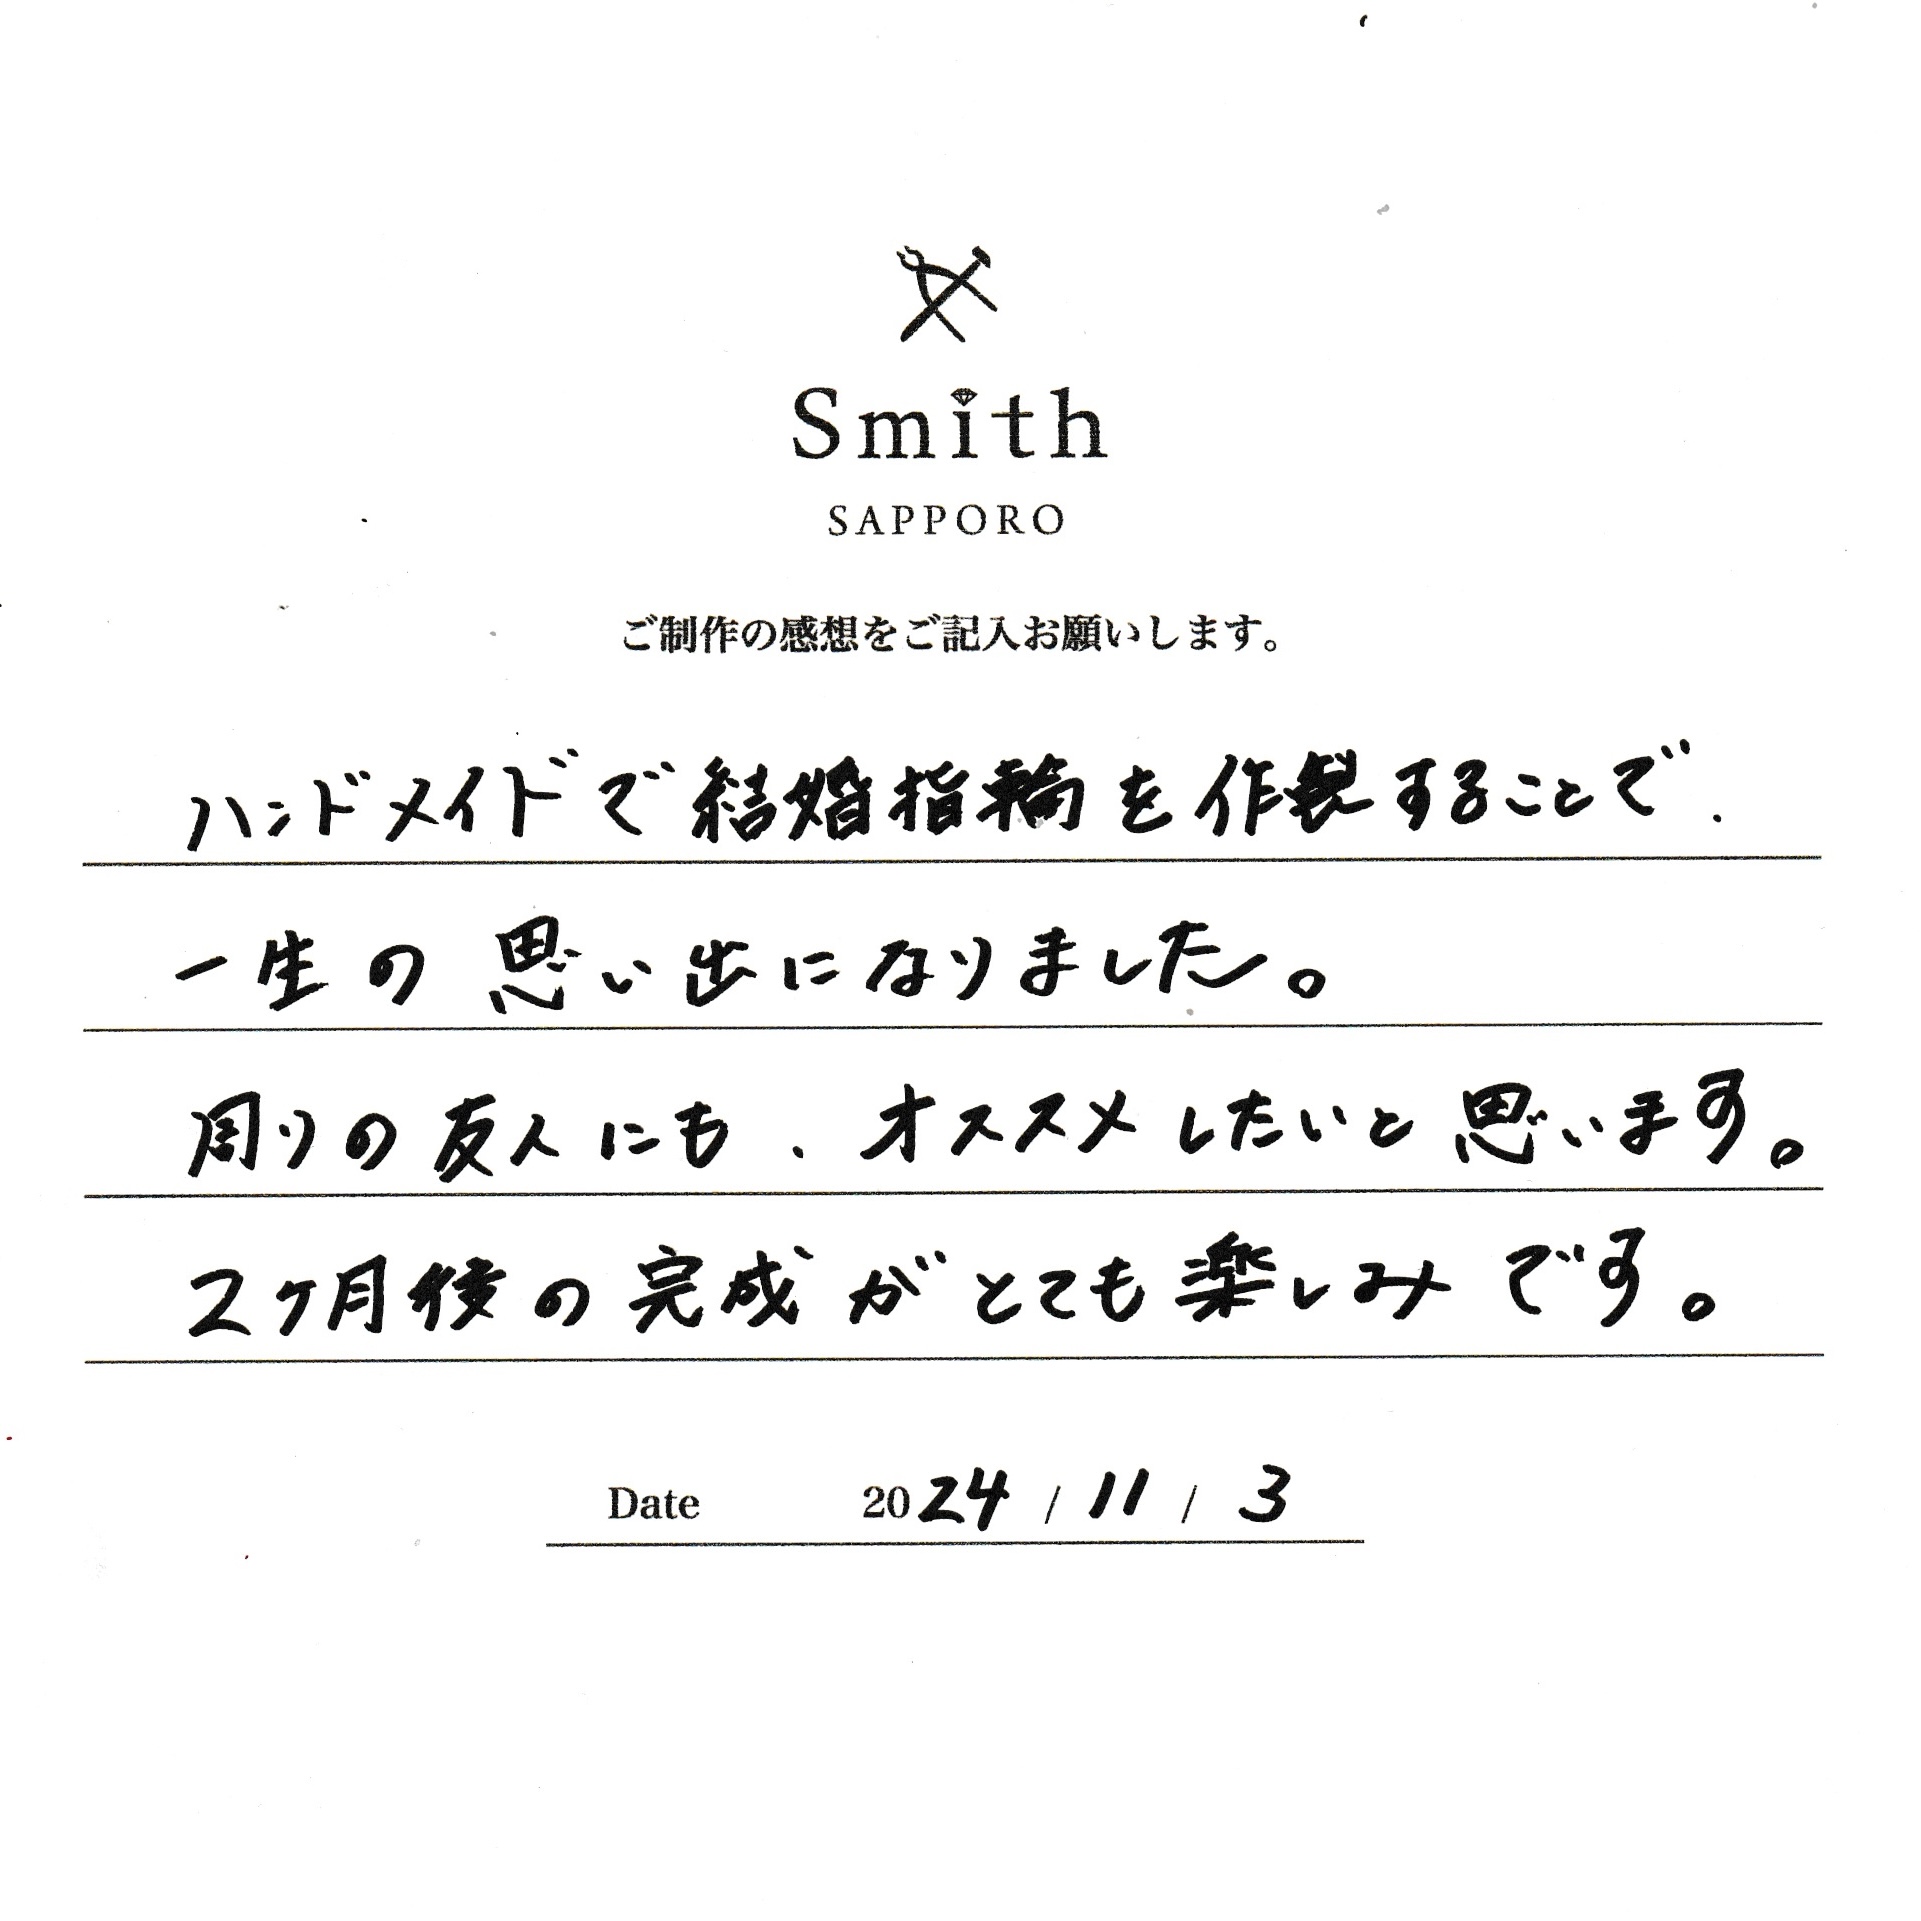 Smith
SAPPORO
ご制作の感想をご記入お願いします。
ハンドメイドで結婚指輪を作製することで、
一生の思い出になりました。
周りの友人にも、オススメしたいと思います。
2ヶ月後の完成がとても楽しみです。
Date 2024 / 11 / 3